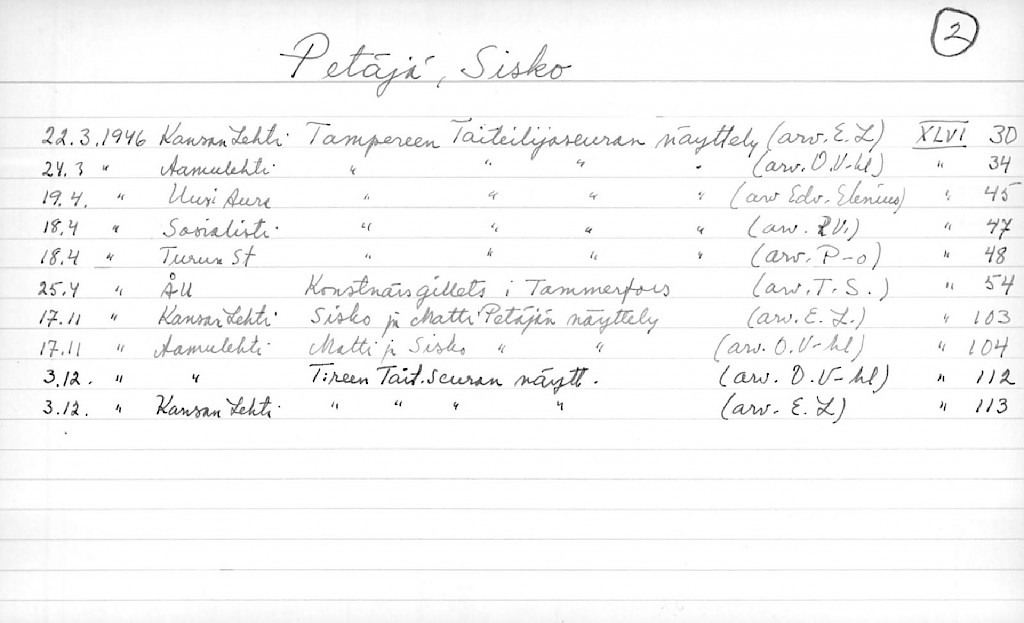 2
Petäjä, Sisko
22.3.1946 Kansan Lehti Tampereen Taiteilijaseuran näyttely (arv. E. L) XLVI 30
24.3 " Aamulehti " " " " (arv. O.V-hl) " 34
19.4. " Uusi Aura " " " " (arv Edv. Elenius) " 45
18.4 " Sosialisti " " " " (arv. V.) " 47
18.4 " Turun St " " " " (arv. P-o) " 48
25.4 " ÅU Konstnärsgillets i Tammerfors (arv. T. S.) " 54
17.11 " Kansan Lehti Sisko ja Matti Petäjän näyttely (arv. E. L.) " 103
17.11 " Aamulehti Matti ja Sisko " " (arv. O.V-hl) " 104
3.12. " " T:reen Tait. Seuran näytt. (arv. O.V-hl) " 112
3.12. " Kansan Lehti " " " " (arv. E. L) " 113